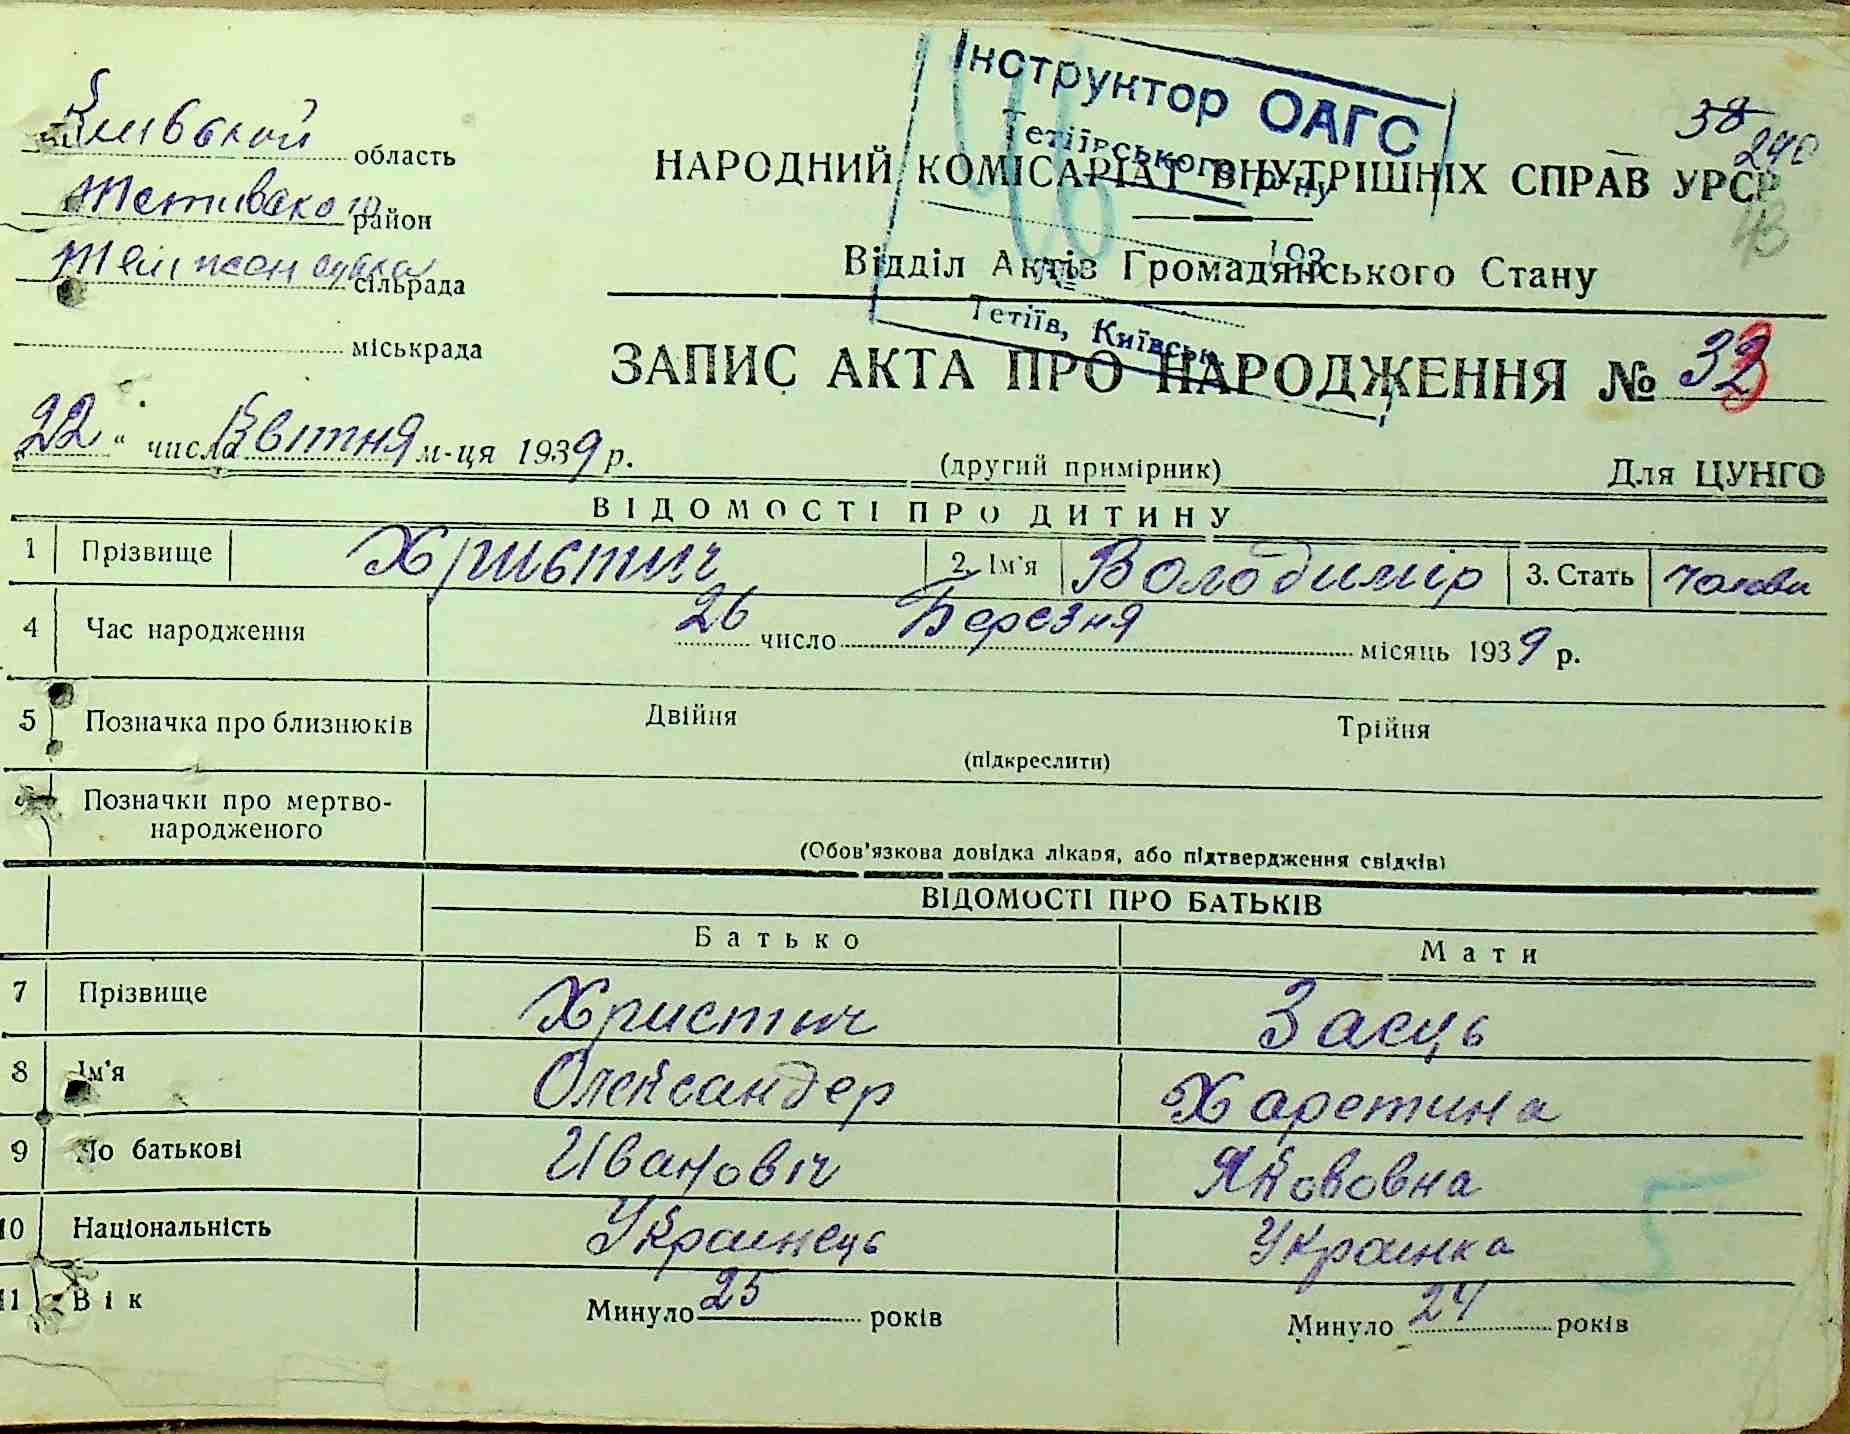 Інструктор ОАГС
Тетіївського р-ну
193
Тетіїв, Київськ.
38
240
Київской область
Тетивского район
сільрада
міськрада
НАРОДНИЙ КОМІСАРІАТ ВНУТРІШНІХ СПРАВ УРСР
Відділ Актів Громадянського Стану
ЗАПИС АКТА ПРО НАРОДЖЕННЯ № 33
22 " числа Квітня м-ця 1939 р.
(другий примірник)
Для ЦУНГО
ВІДОМОСТІ ПРО ДИТИНУ
1 Прізвище Христич 2. Ім'я Володимір 3. Стать Чолові
4 Час народження 26 число Березня місяць 1939 р.
5 Позначка про близнюків Двійня Трійня
(підкреслити)
Позначки про мертво-
народженого
(Обов'язкова довідка лікаря, або підтвердження свідків)
ВІДОМОСТІ ПРО БАТЬКІВ
Батько Мати
7 Прізвище Христич Заєць
8 Ім'я Олександер Харетина
9 По батькові Ивановіч Якововна
10 Національність Украинець Украинка
11 Вік Минуло 25 років Минуло 24 років
5